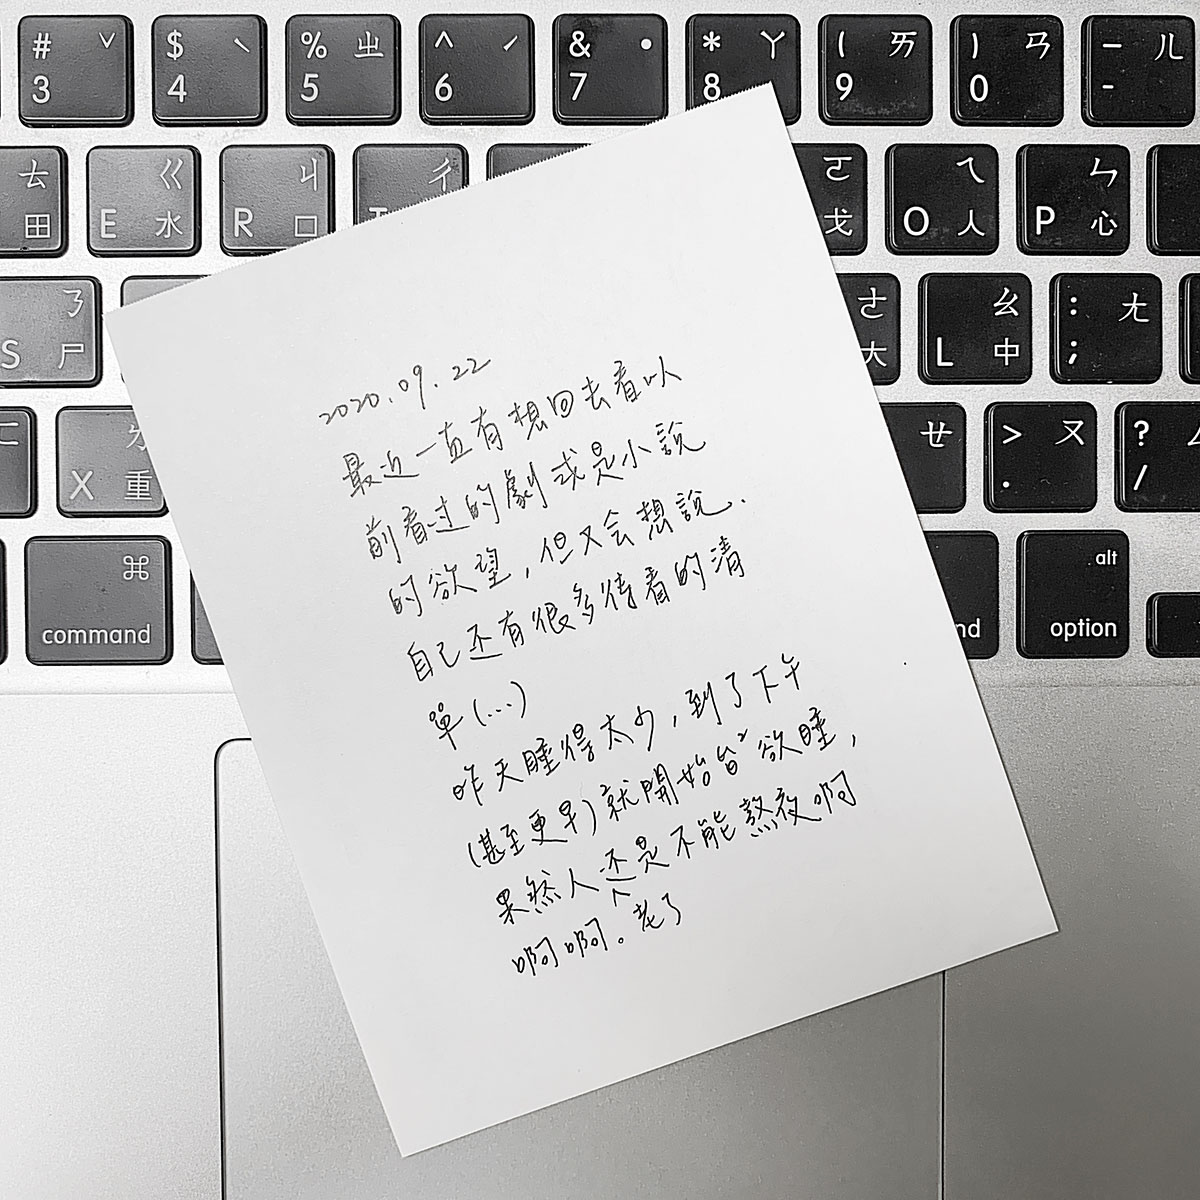 # ˇ 3 $ ˋ 4 % ㄓ 5 ^ ˊ 6 & ˙ 7 * ㄚ 8 ( ㄞ 9 ) ㄢ 0 – ㄦ -
ㄊ 田 E ㄍ 水 R ㄐ 口 ㄔ ㄛ 戈 O ㄟ 人 P ㄣ 心
S ㄋ 尸 ㄜ 大 L ㄠ 中 : ㄤ ;
ㄈ X ㄌ 重 ㄝ > ㄡ . ? ㄥ /
⌘ command nd alt option
2020.09.22
最近一直有想回去看以
前看过的劇或是小說
的欲望,但又会想說.
自己还有很多待看的清
單(...)
昨天睡得太少,到了下午
(甚至更早)就開始昏²欲睡,
果然人还是不能熬夜啊
啊啊。老了